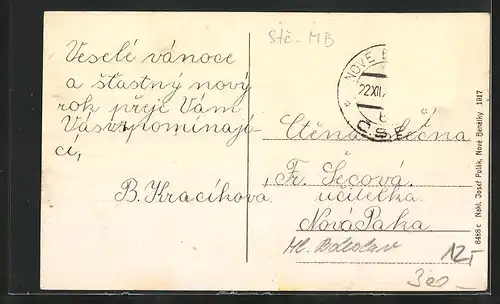 Stč - MB
Veselé vánoce
a šťastný nový
rok přeje Vám
Vás vzpomínají-
cí,
B. Kracíkova
NOVÉ B
22.XII.
Č.S.P.
Ctěná Slečna
Fr. Šécová,
učitelka
Nová Paka
Ml. Boleslav
12,-
300 -
8468 c Nakl. Josef Polák, Nové Benátky 1917